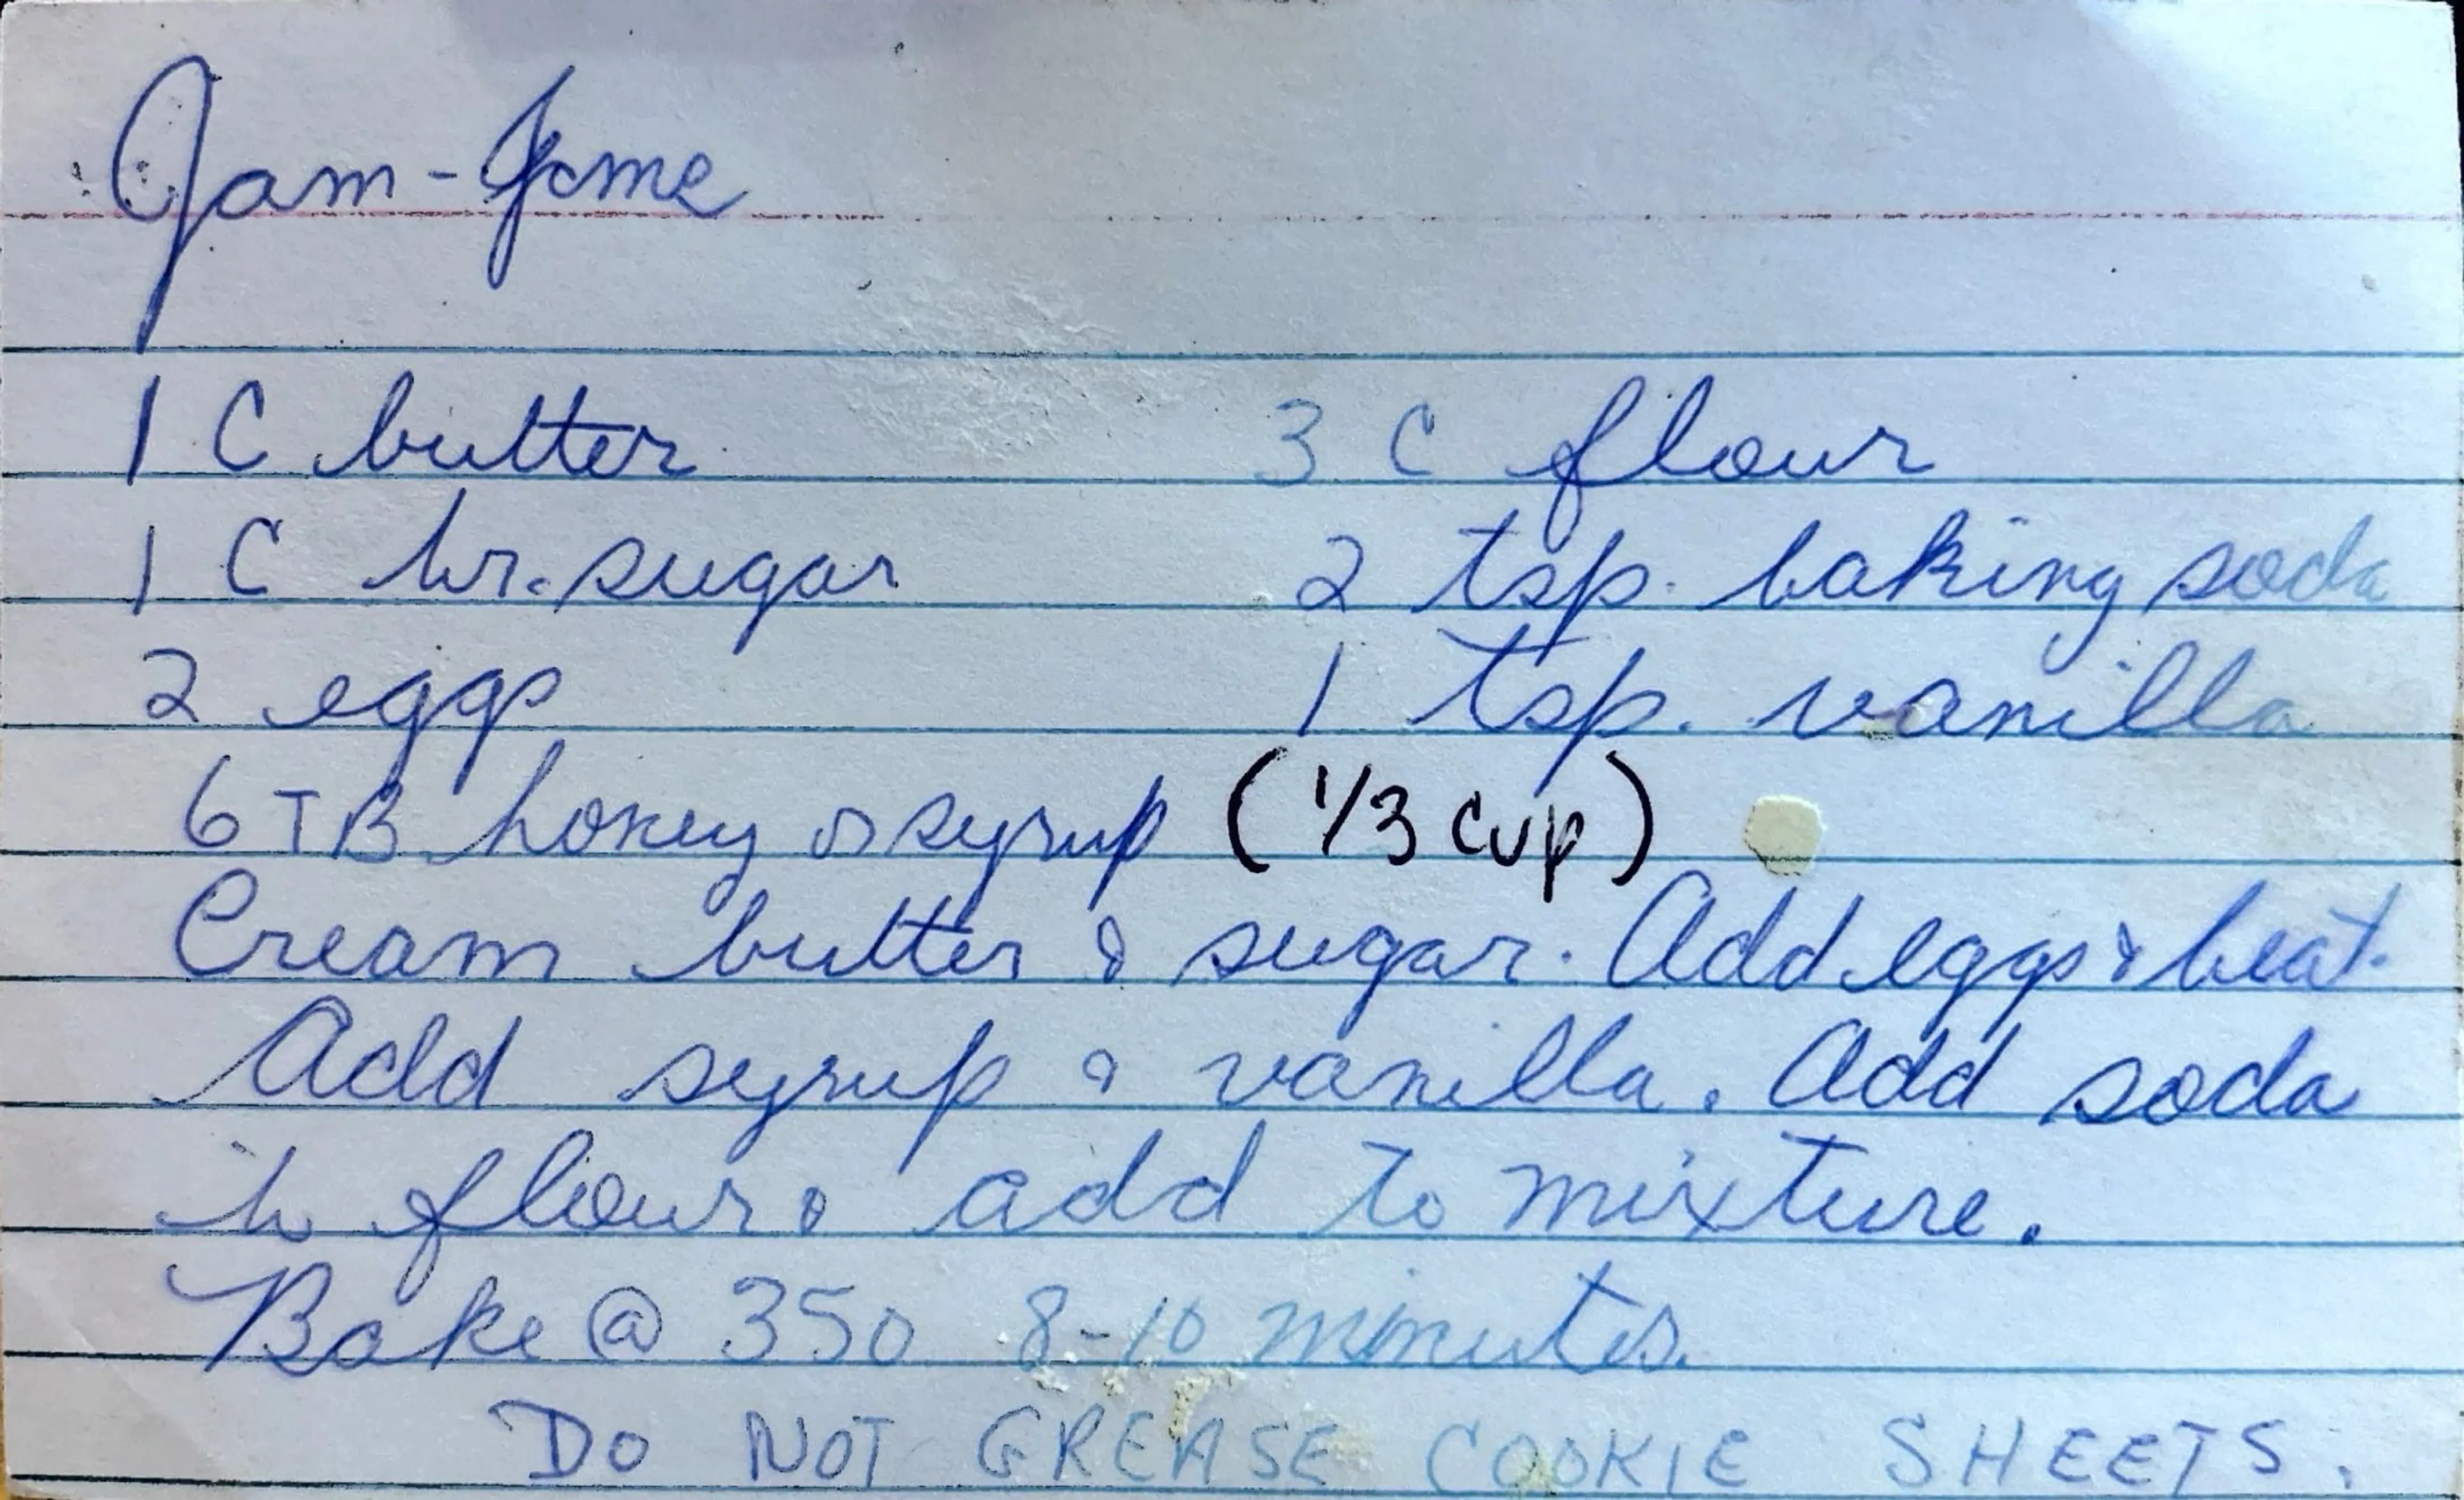 Jam-Jame
1 C butter 3 C flour
1 C br. sugar 2 tsp. baking soda
2 eggs 1 tsp. vanilla
6 TB honey or syrup (1/3 cup)
Cream butter & sugar. Add eggs & beat.
Add syrup & vanilla. Add soda
in flour & add to mixture.
Bake @ 350 8-10 minutes.
DO NOT GREASE COOKIE SHEETS.